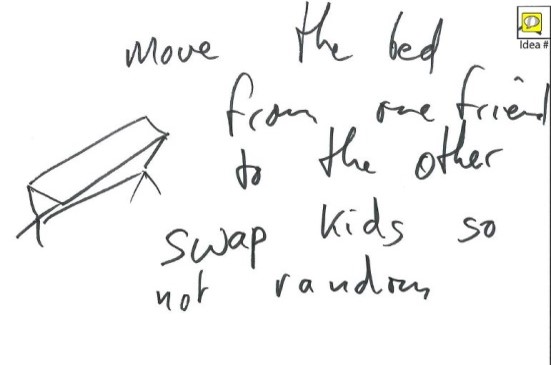 Idea #
move the bed
from one friend
to the other
swap kids so
not random